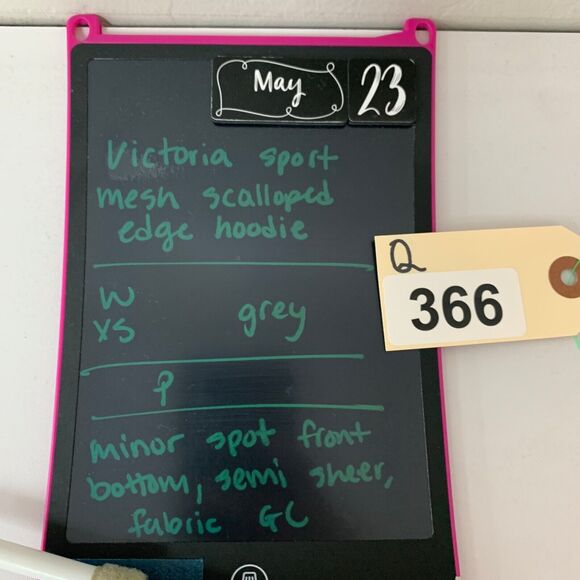 May 23
Victoria sport
mesh scalloped
edge hoodie
Q
366
W
XS grey
P
minor spot front
bottom, semi sheer,
fabric GC